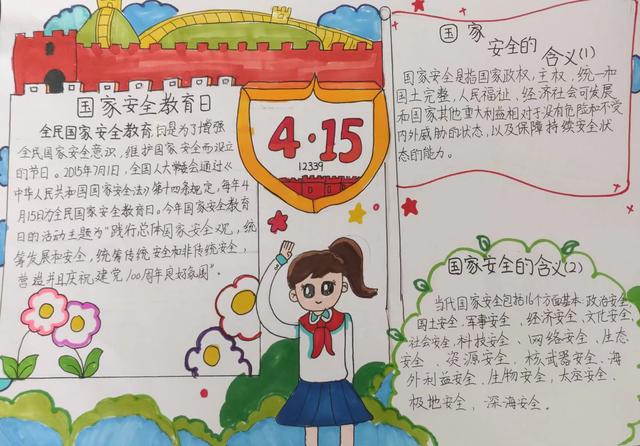 国家安全教育日
全民国家安全教育日是为了增强
全民国家安全意识，维护国家安全而设立
的节日。2015年7月1日，全国人大常委会通过《
中华人民共和国国家安全法》第十四条规定，每年4
月15日为全民国家安全教育日。今年国家安全教育
日的活动主题为“践行总体国家安全观，统
筹发展和安全，统筹传统安全和非传统安全，
营造并且庆祝建党100周年良好氛围”。
4·15
12339
国家安全的含义(1)
国家安全是指国家政权，主权，统一和
国土完整，人民福祉，经济社会可发展
和国家其他重大利益相对于没有危险和不受
内外威胁的状态，以及保障持续安全状
态的能力。
国家安全的含义(2)
当代国家安全包括16个方面基本：政治安全
国土安全、军事安全、经济安全、文化安全
社会安全、科技安全、网络安全、生态
安全、资源安全、核武器安全、海
外利益安全、生物安全、太空安全、
极地安全、深海安全。